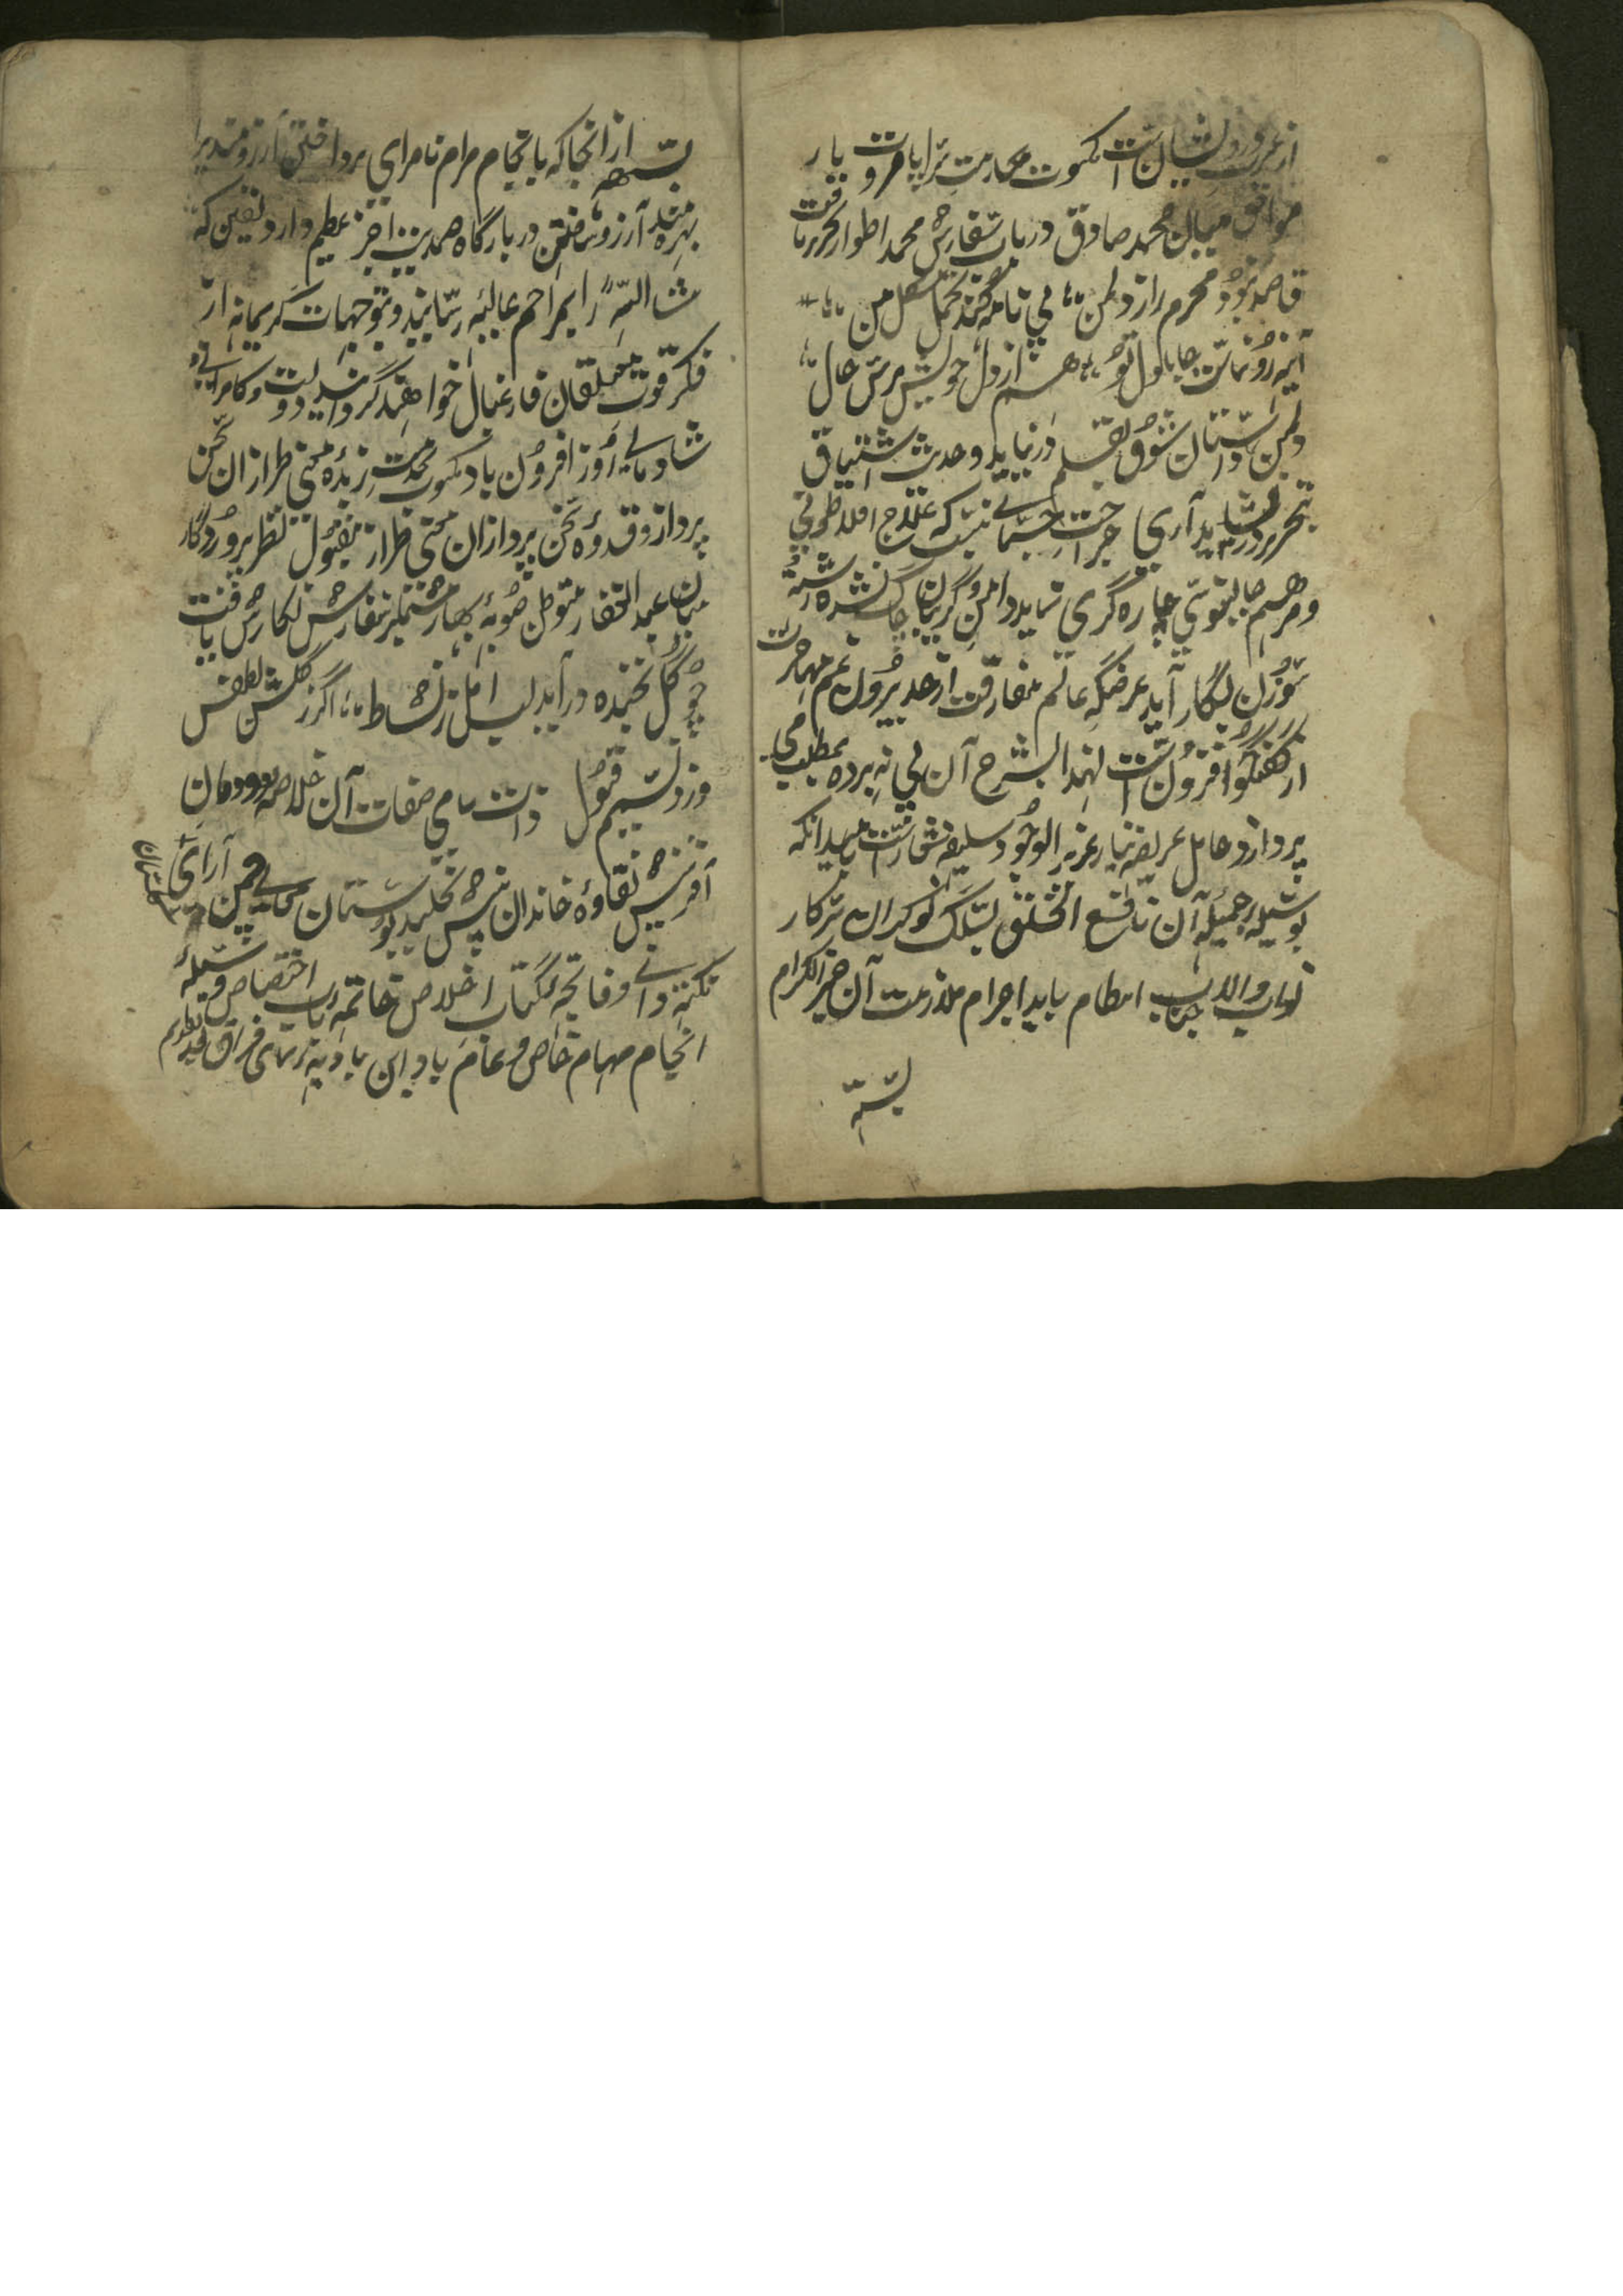 از غرور دولتشان است مکتوب محارمت سراپا مروت یار
موافق میان محمد صادق در باب سفارش محمد اطوار تحریر یافت
قاصد نبود محرم راز دل من پی نامه کند مشکل من
آینه رونماست جانا دل تو هم از دل خویش پرس حال دل
من داستان شوق بقلم در نیاید و حدیث اشتیاق
بتحریر در نیاید آری جراحت جسمانی نیست که علاج افلاطونی
و مرهم جالینوسی چاره گری نماید دامن و گریبان چاک نشده رشته
سوزن بکار آید عرضکه عالم مفارقت از حد بیرون غم مهاجرت
از گفتگو افزون است لهذا بشرح آن پی نه برده بمطلب می
پردازد حامل عریضه نیاز عزیز الوجود سلیقه شعار است امید انکه
بوسیله جمیله آن نافع الخلق بسلک نوکران سرکار
نواب والا جناب انتظام یابد احرام ملازمت آن خیر الکرام
بسته
بسته از انجا که بانجام مرام نامرادی پرداختن آرزومندیرا
بهره مند آرزو ساختن در بارگاه صمدیت اجر عظیم دارد یقین که
را بمراحم عالیه رسانید و بتوجهات کریمانه از
فکر قوت متعلقان فارغبال خواهند گردانید دولت و کامرانی
شادمانی روز افزون باد مکتوب محبت زبدهٔ معنی طرازان سخن
پرداز و قدوهٔ سخن پردازان معنی طراز مقبول نظر پروردگار
میان عبد الغفار متوطن صوبهٔ بهار متضمن سفارش نگارش یافت
چو گل بخنده در آید لب امل ز نشاط اگر ز گلشن لطفش
وزد نسیم قبول ذات سامی صفات آن خلاصه دودمان
آفرینش نقاوهٔ خاندان بینش نخلبند بوستان معانی چمن آرای
نکته دانی و فاتحه کتاب اخلاص خاتمه باب اختصاص وسیله
انجام مهام خاص و عام باد این بادیه پیمای فراق